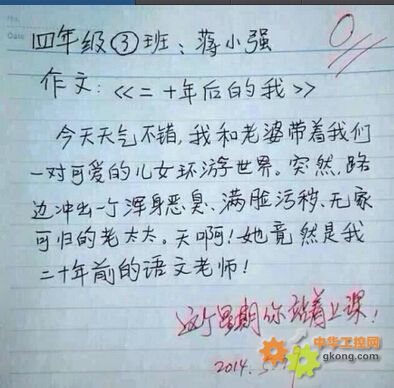 No.
Date
四年级③班：蒋小强
0
作文：《二十年后的我》
今天天气不错，我和老婆带着我们
一对可爱的儿女环游世界。突然，路
边冲出一个浑身恶臭、满脸污秽、无家
可归的老太太。天啊！她竟然是我
二十年前的语文老师！
这个星期你站着上课！
2014.5
中华工控网
gkong.com